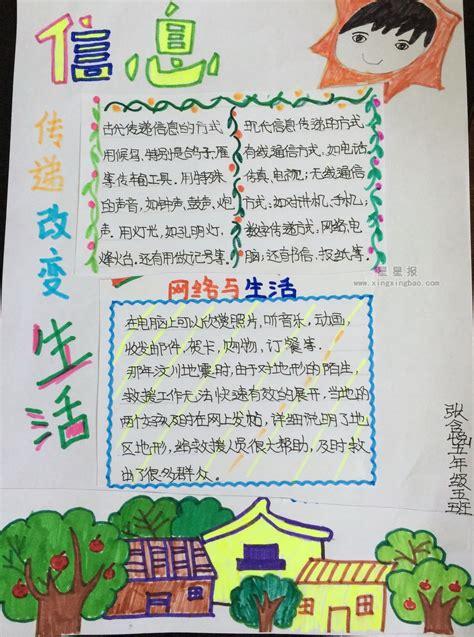 信息
传递改变
生活
古代传递信息的方式
用候鸟,特别是鸽子,雁
等传书工具。用特殊
的声音,如钟声、鼓声、炮
声。用灯光,如孔明灯、
烽火台,还有用做记号等.
现代信息传递的方式
有线通信方式,如电话、
传真、电视;无线通信
方式:如对讲机,手机,
数字传递方式,网络电
脑;还有书信、报纸等。
星星报
www.xingxingbao.com
网络与生活
在电脑上可以欣赏照片,听音乐,动画,
收发邮件,贺卡,购物,订餐等.
那年汶川地震时,由于对地形的陌生,
救援工作无法快速有效的展开,当地的
两个女孩及时在网上发帖,详细说明了地
区地形,给救援人员很大帮助,及时救
出了很多群众.
五年级五班